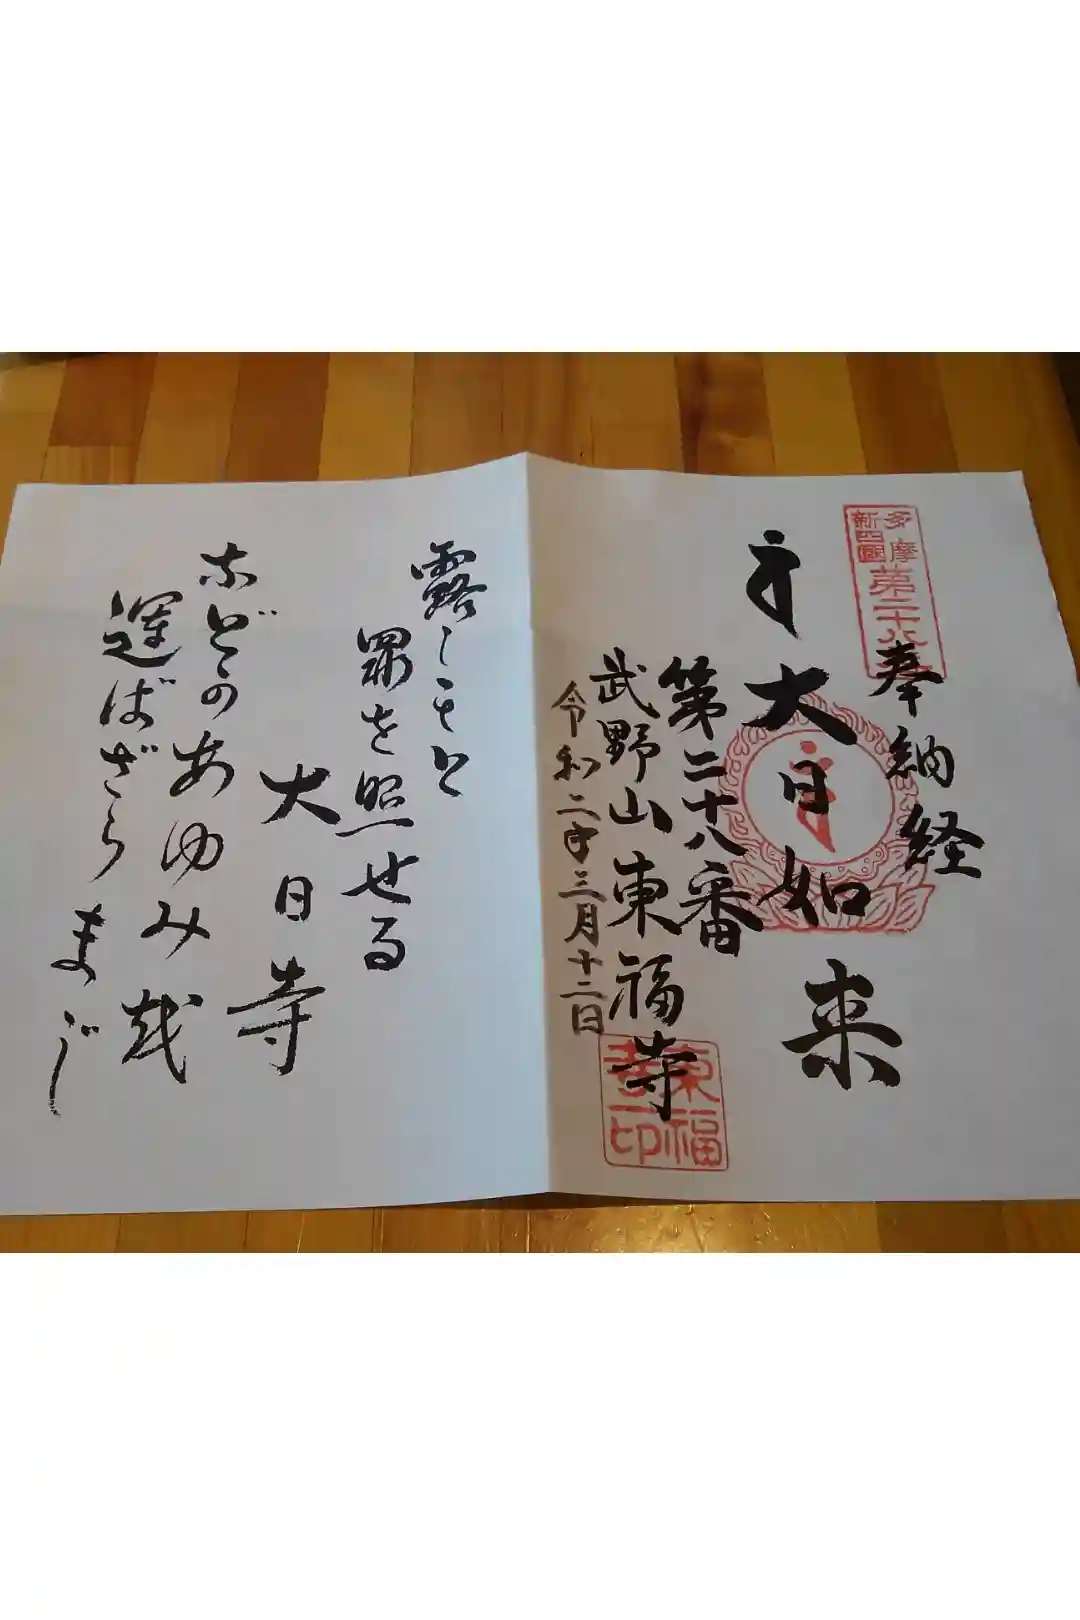 多摩
新四國
第二十八番
奉納経
大日如来
第二十八番
武野山東福寺
令和二年三月十二日
東福
寺印
露しもと
罪を照せる
大日寺
などかあゆみ越
運ばざらまじ